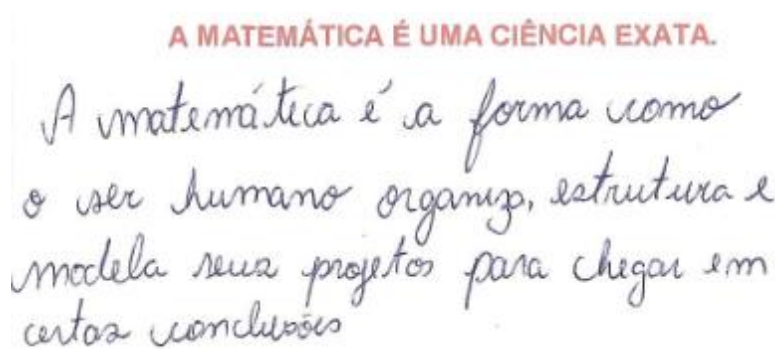 A MATEMÁTICA É UMA CIÊNCIA EXATA.
A matemática é a forma como
o ser humano organiza, estrutura e
modela seus projetos para chegar em
certas conclusões